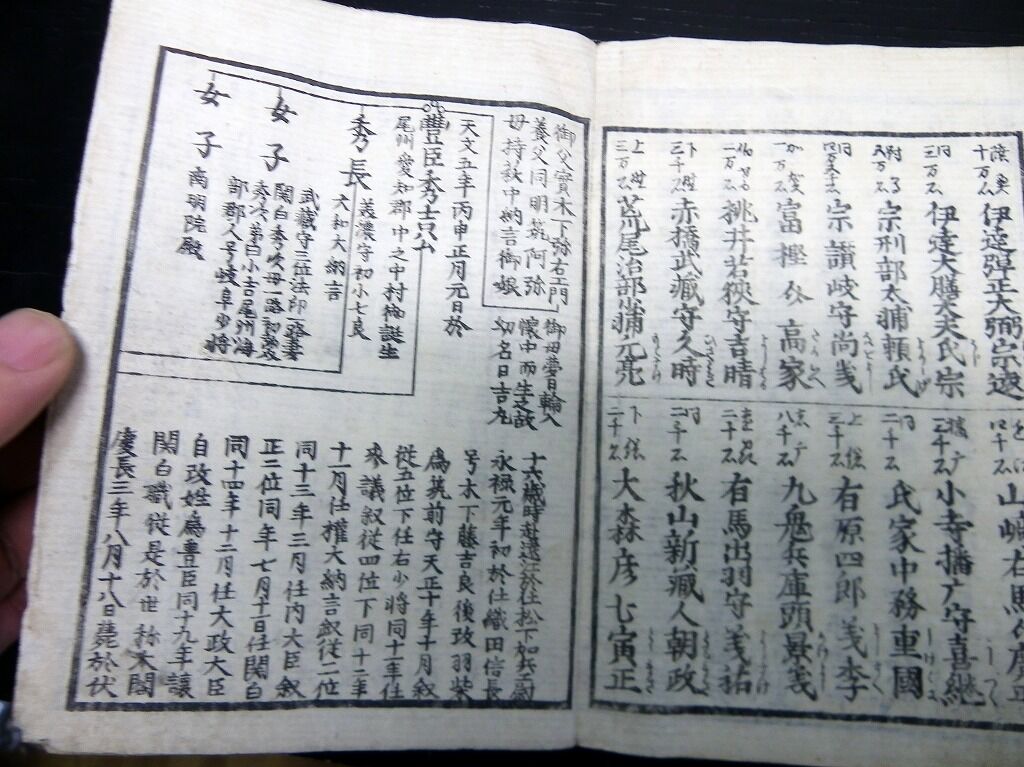 十万石 伊達弾正大弼宗遼
三万石 伊達大膳大夫氏宗
宗刑部太捕頼氏
宗讃岐守尚義
富樫介高家
一万石 桃井若狭守吉晴
三千石 赤橋武蔵守久時
三万石 荒尾治部少捕元亮
山崎右馬
小寺播广守喜継
二千石 氏家中務重國
三千石 有原四郎義李
八千石 九鬼兵庫頭景義
二千石 右馬出羽守義祐
二千石 秋山新蔵人朝政
二千石 大森彦七寅正
御父實木下弥右エ門
養父同明筑阿弥
母持萩中納言御娘
御母夢日輪入
懐中而生之故
幼名日吉丸
天文五年丙申正月元日於
豐臣秀吉公
尾州愛知郡中之中村御誕生
秀長
美濃守初小七良
大和大納言
女子
武蔵守三位法印一路妻
関白秀次母一路初勢
秀次弟白小吉尾州海
部郡人号岐阜少将
女子
南明院殿
十六歳時遊遠江於仕松下加兵エ尉
永禄元年初於仕織田信長
号木下藤吉良後改羽柴
為筑前守天正十年十月叙
従五位下任右少将同十一年任
参議叙従四位下同十二年
十一月任権大納言叙従二位
同十三年三月任内大臣叙
正二位同年七月十一日任関白
同十四年十二月任大政大臣
自改姓為豊臣同十九年讓
関白職従是於世称太閤
慶長三年八月十八日薨於伏